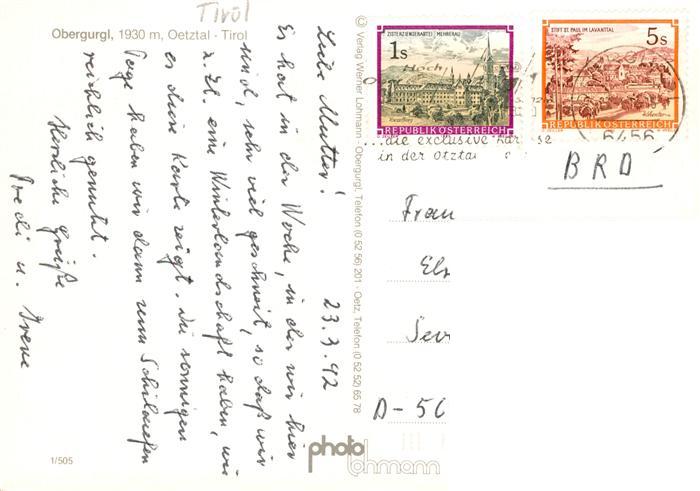 Tirol
Obergurgl, 1930 m, Oetztal · Tirol
23.3.92
Liebe Mutter!
Es hat in der Woche, in der wir hier
sind, sehr viel geschneit, so daß wir
z. Zt. eine Winterlandschaft haben, wie
es diese Karte zeigt. Die sonnigen
Tage haben wir dann zum Schilaufen
reichlich genutzt.
Herzliche Grüße
Fredi u. Irene
1/505
© Verlag Werner Lohmann · Obergurgl, Telefon (0 52 56) 201 · Oetz, Telefon (0 52 52) 65 78
photo
lohmann
ZISTERZIENSERABTEI MEHRERAU
1s
REPUBLIK ÖSTERREICH
STIFT ST. PAUL IM LAVANTTAL
5s
REPUBLIK ÖSTERREICH
6456
...die exclusive
in der Ötztal
BRD
Frau
D-56